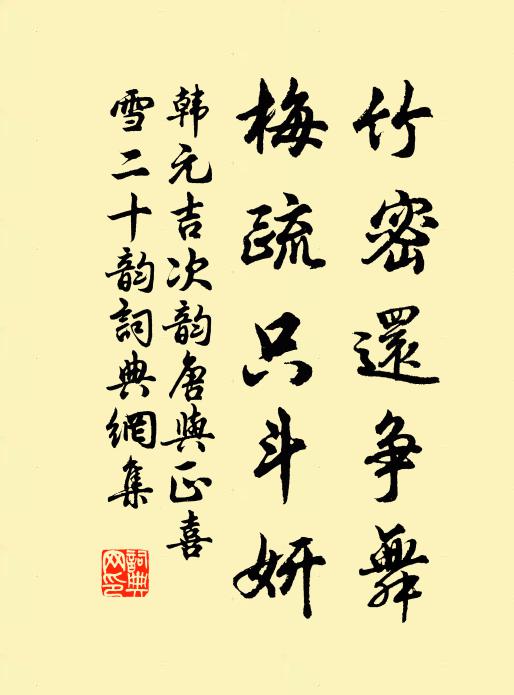 竹密還争舞
梅疏只斗妍
韩元吉次韵唐與正喜
雪二十韵詞典網集
詞典网印